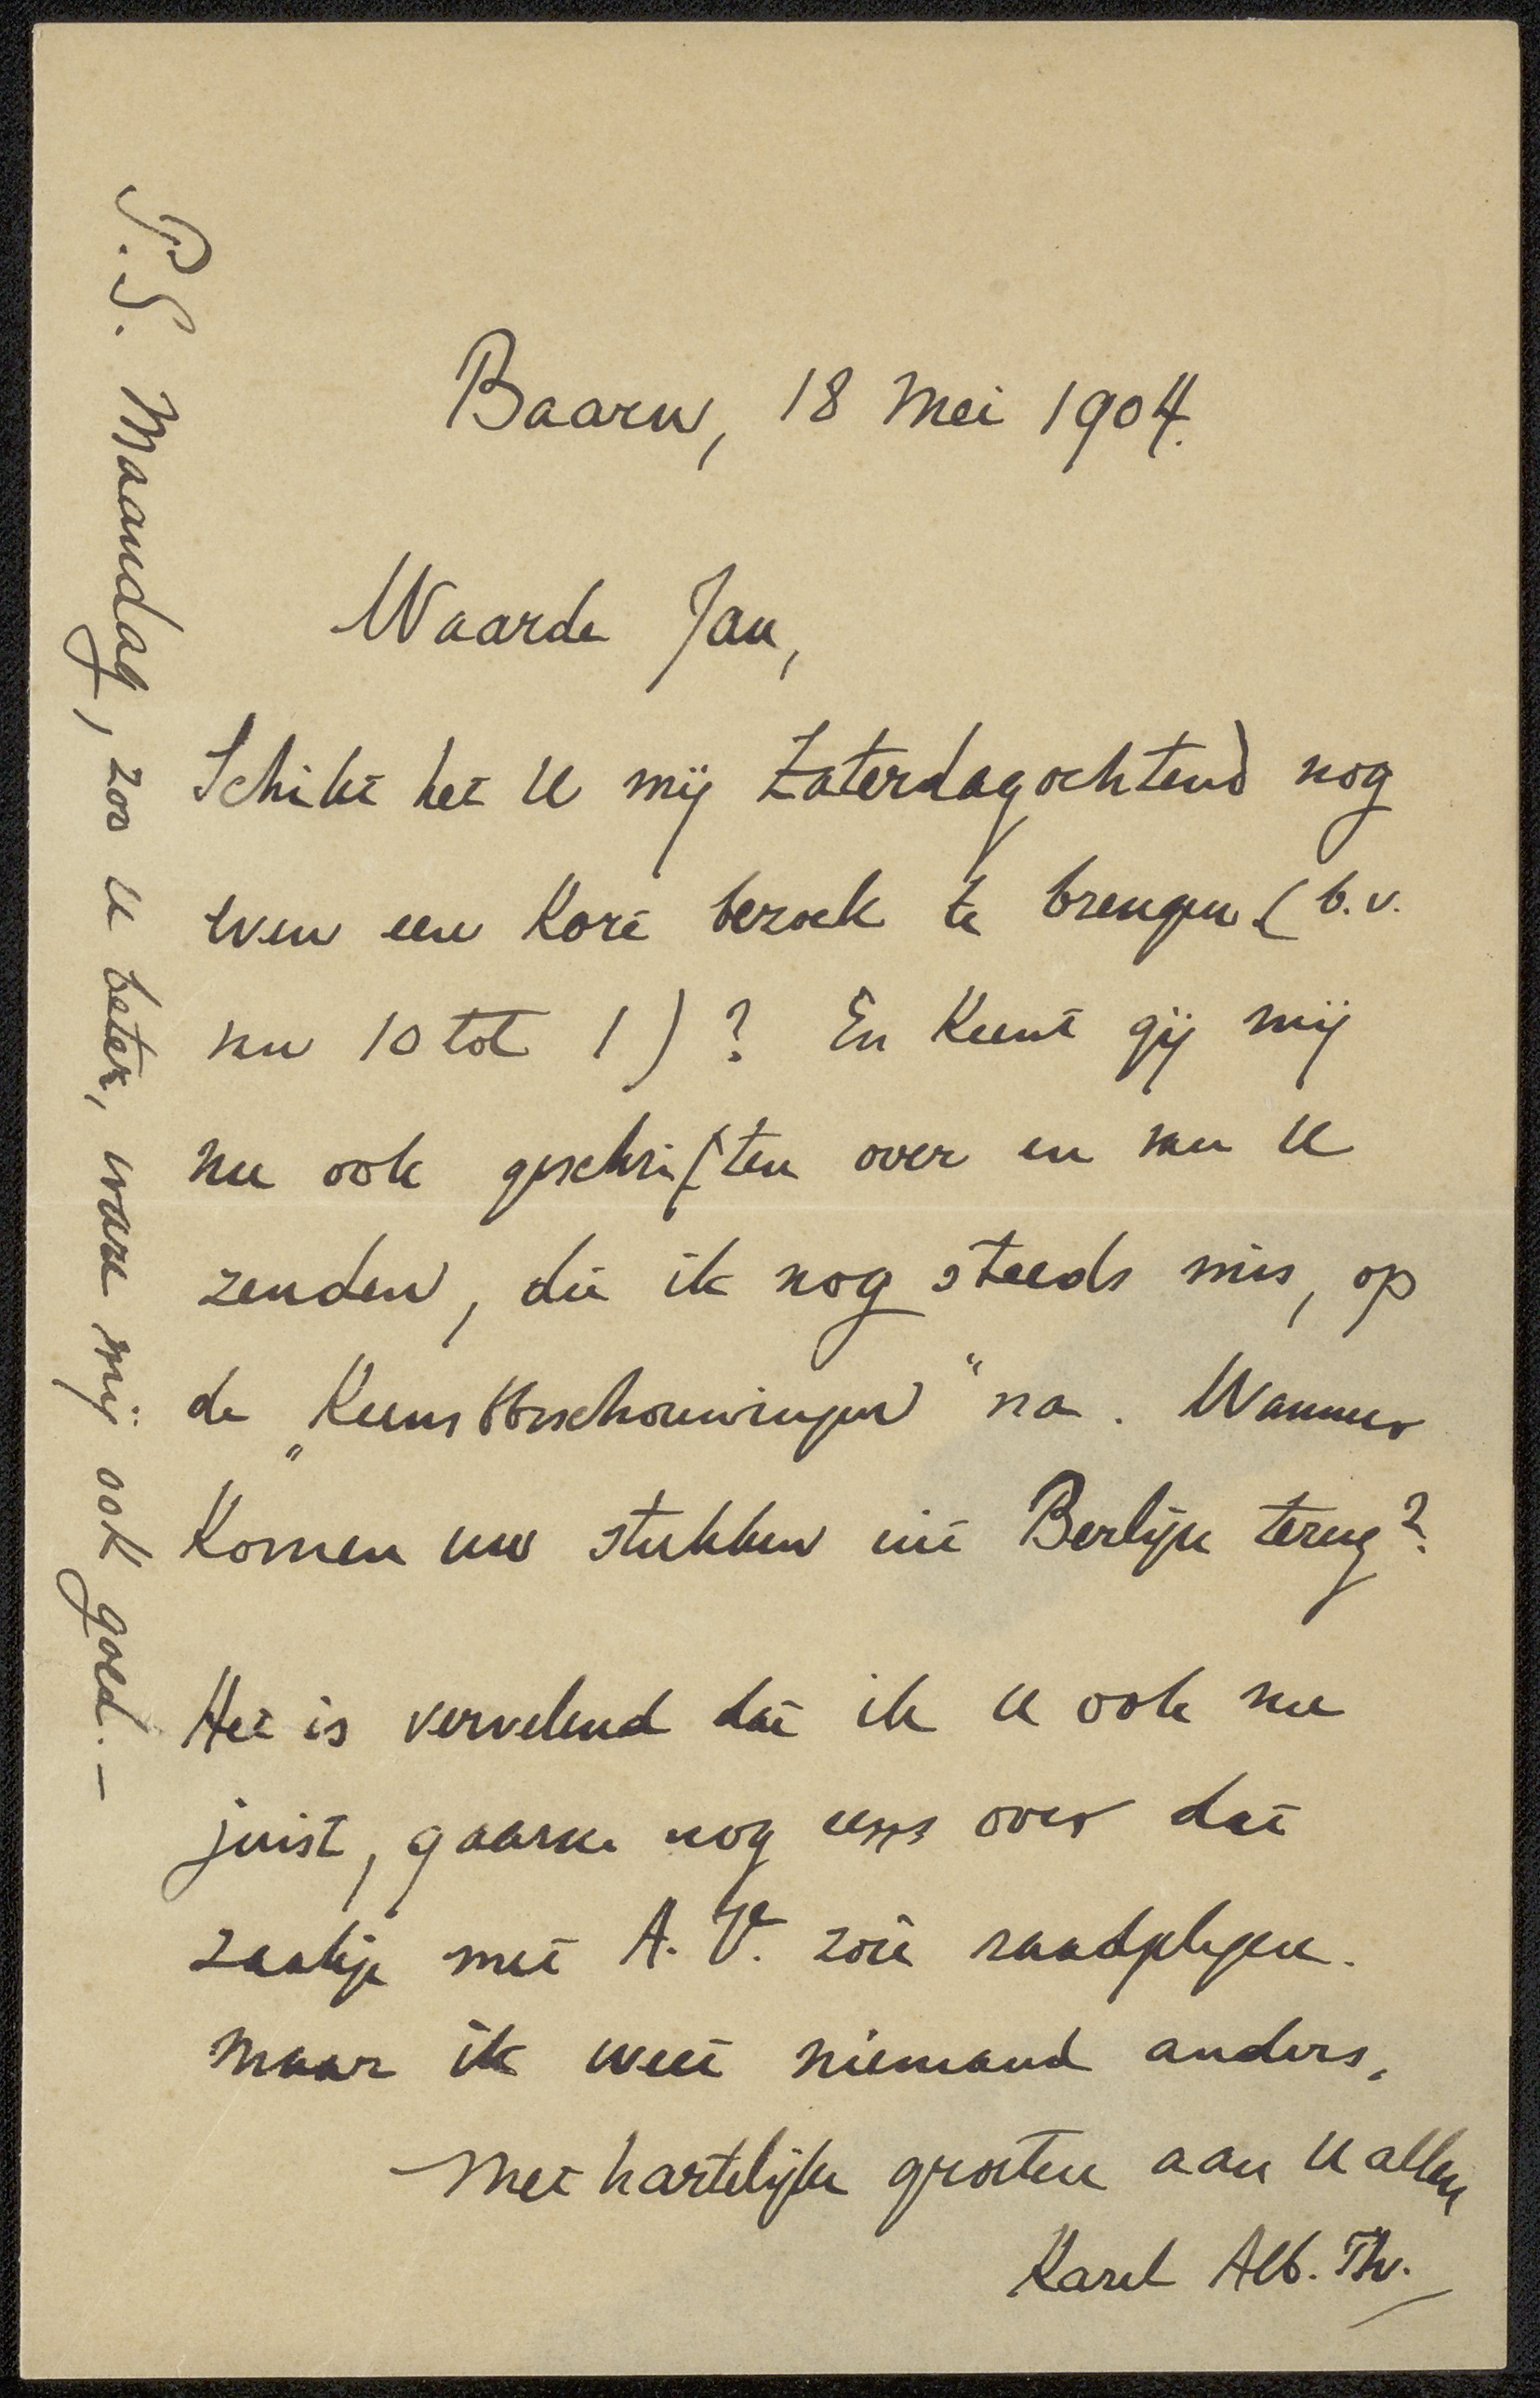 Baarn, 18 Mei 1904.
Waarde Jan,
Schikt het U mij Zaterdagochtend nog
even een kort bezoek te brengen (b.v.
van 10 tot 1)? En kunt gij mij
nu ook geschriften over en van U
zenden, die ik nog steeds mis, op
de „Kunstbeschouwingen" na. Wanneer
komen uw stukken uit Berlijn terug?
Het is vervelend dat ik U ook nu
juist, gaarne nog eens over dat
zaakje met A. V. zoû raadplegen.
Maar ik weet niemand anders.
Met hartelijke groeten aan U allen
Karel Alb. Th.
P.S. Maandag, zoo U beter, ware mij ook goed. –